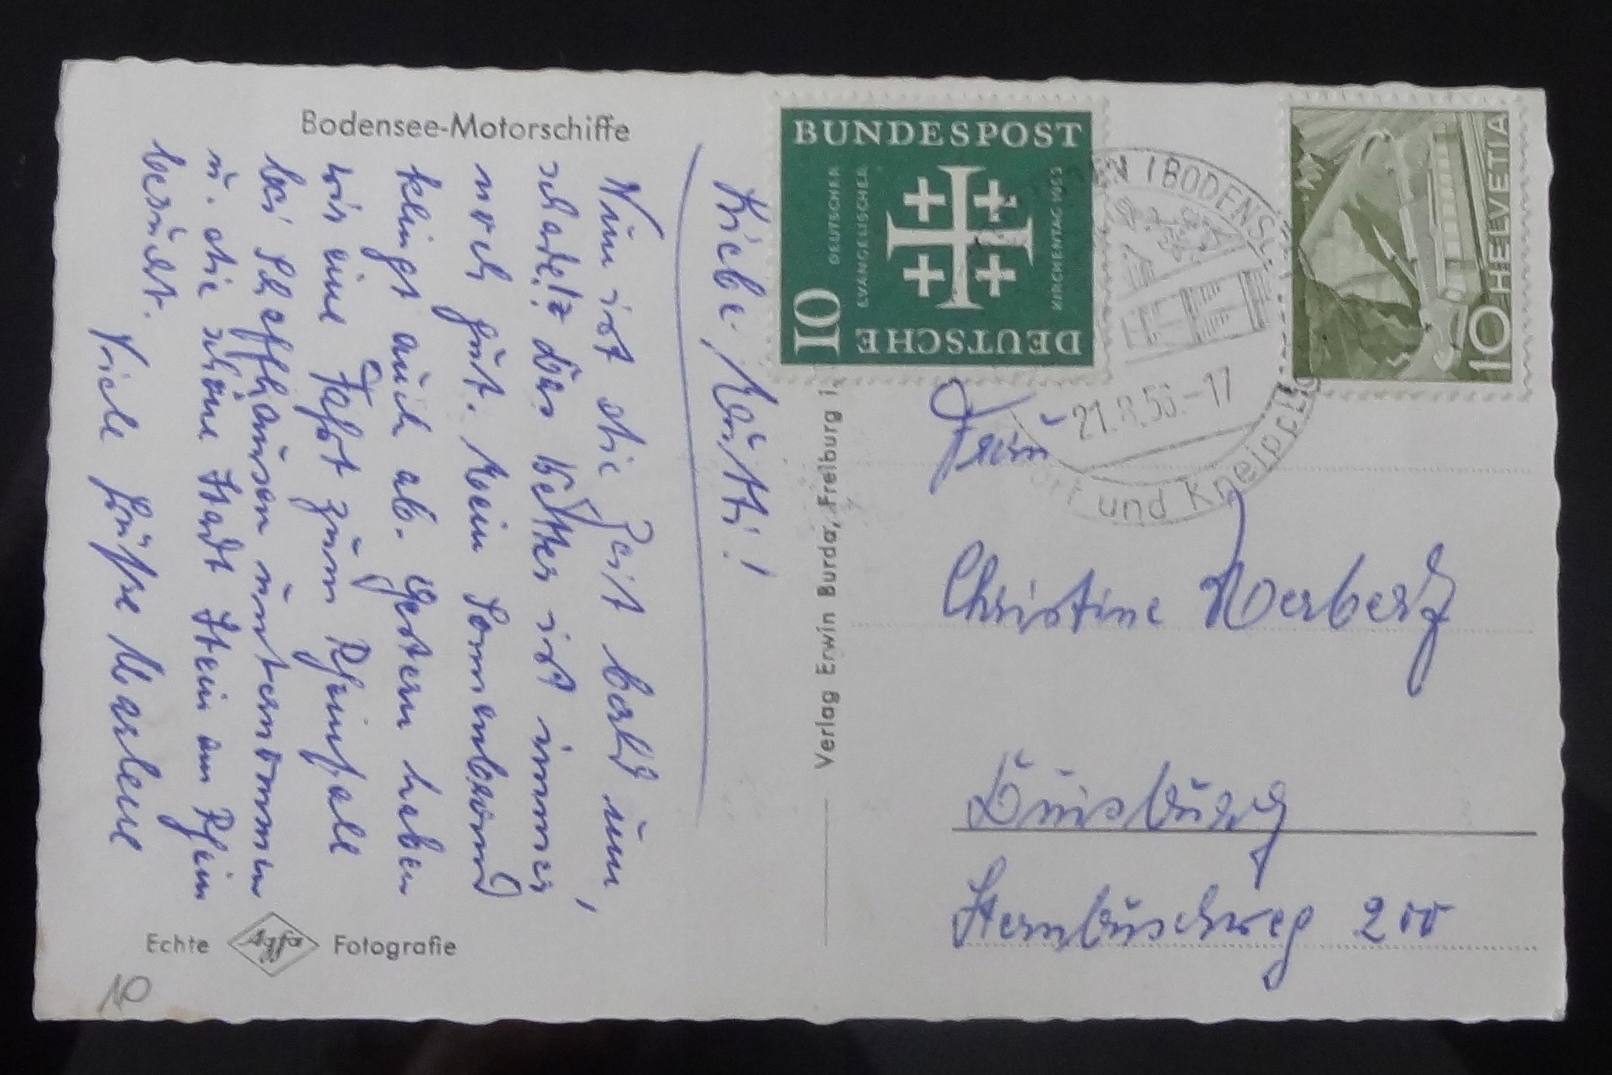 Bodensee-Motorschiffe
Liebe Mutti!
Nun ist die Zeit bald um,
schade! das Wetter ist immer
noch gut. Mein Sonnenbrand
klingt auch ab. Gestern haben
wir eine Fahrt zum Rheinfall
bei Schaffhausen unternommen
u. die schöne Stadt Stein am Rhein
besucht.
Viele Grüße Marlene
Echte Agfa Fotografie
10
Verlag Erwin Burda, Freiburg i.
BUNDESPOST
DEUTSCHE
10
DEUTSCHER
EVANGELISCHER
KIRCHENTAG
EN (BODENSEE)
21.8.56.-17
ort und Kneipp
HELVETIA
10
Frau
Christine
Duisburg
Sternbuschweg 200